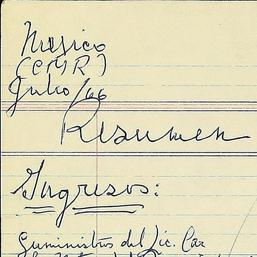 Mexico
(CMR)
Julio/66
Resumen
Ingresos:
Suministros del Lic. Car